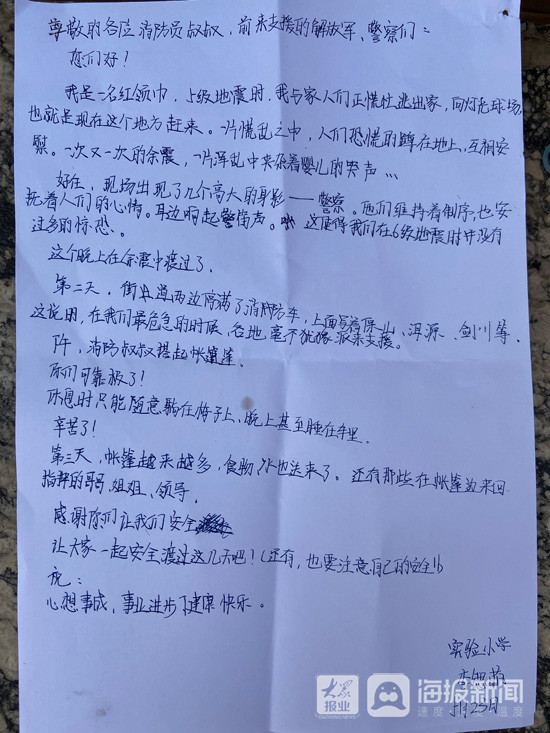 尊敬的各位消防员叔叔，前来支援的解放军、警察们：
您们好！
我是一名红领巾，5级地震时，我与家人们正慌忙逃出家，向灯光球场
也就是现在这个地方赶来。一片慌乱之中，人们恐慌的蹲在地上，互相安
慰。一次又一次的余震，一片浑乱中夹杂着婴儿的哭声……
好在，现场出现了几个高大的身影——警察。他们维持着制序，也安
抚着人们的心情。耳边响起警笛声。这使得我们在6级地震时并没有
过多的惊恐、。
这个晚上在余震中渡过了。
第二天，街道两边停满了消防车，上面写着保山、洱源、剑川等，
这说明，在我们最危急的时候，各地毫不犹豫派来支援。
下午，消防叔叔搭起帐篷。
你们可靠极了！
休息时只能随意躺在椅子上、晚上甚至睡在车里。
辛苦了！
第三天，帐篷越来越多，食物水也送来了。还有那些在帐篷边来回
指挥的哥哥、姐姐、领导。
感谢你们让我们安全
让大家一起安全渡过这几天吧！（还有，也要注意自己的安全！）
祝：
心想事成，事业进步，健康快乐。
实验小学
5月23日
大众报业
海报新闻
速度 深度 温度